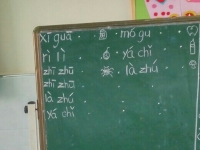 xī guā mó gu
rì lì yá chǐ
zhī zhū là zhú
zhī zhū
là zhú
yá chǐ